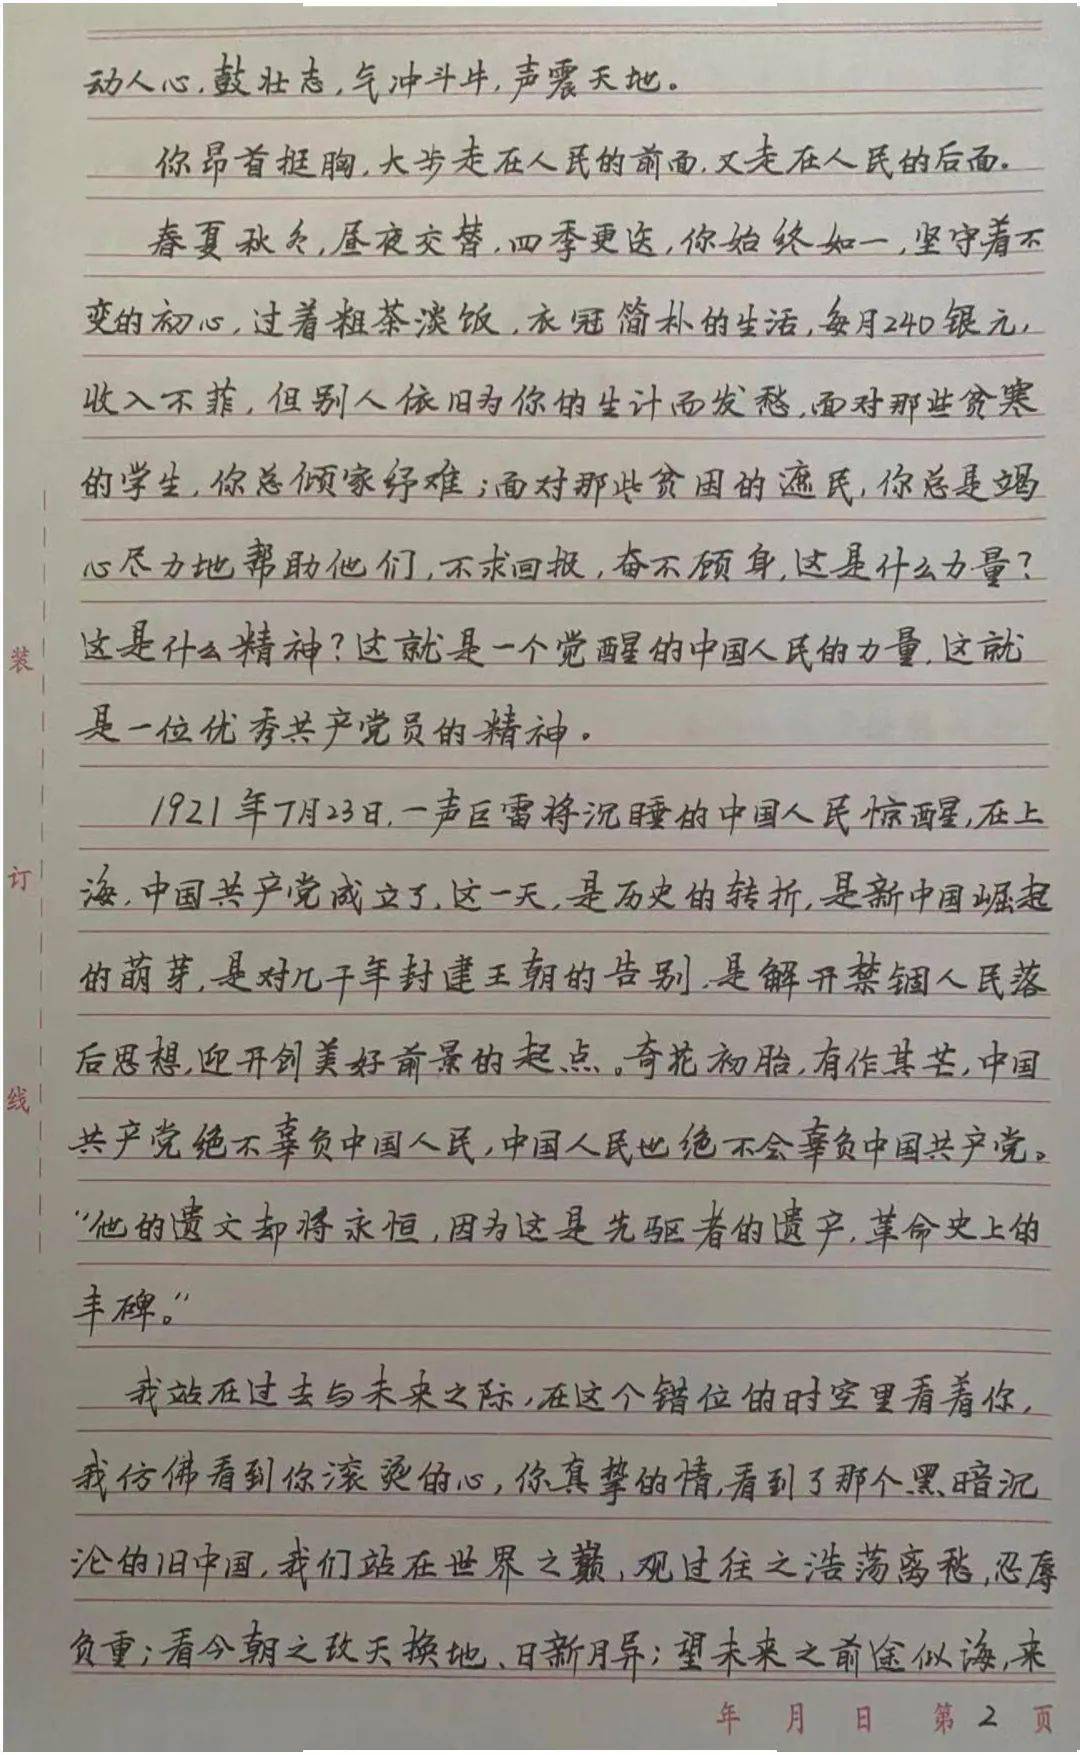 动人心,鼓壮志,气冲斗牛,声震天地。
你昂首挺胸,大步走在人民的前面,又走在人民的后面。
春夏秋冬,昼夜交替,四季更迭,你始终如一,坚守着不
变的初心,过着粗茶淡饭,衣冠简朴的生活,每月240银元,
收入不菲,但别人依旧为你的生计而发愁,面对那些贫寒
的学生,你总倾家纾难;面对那些贫困的遮民,你总是竭
心尽力地帮助他们,不求回报,奋不顾身,这是什么力量?
这是什么精神?这就是一个觉醒的中国人民的力量,这就
是一位优秀共产党员的精神。
1921年7月23日,一声巨雷将沉睡的中国人民惊醒,在上
海,中国共产党成立了,这一天,是历史的转折,是新中国崛起
的萌芽,是对几千年封建王朝的告别,是解开禁锢人民落
后思想,迎开创美好前景的起点。奇花初胎,有作其芒,中国
共产党绝不辜负中国人民,中国人民也绝不会辜负中国共产党。
“他的遗文却将永恒,因为这是先驱者的遗产,革命史上的
丰碑。”
我站在过去与未来之际,在这个错位的时空里看着你,
我仿佛看到你滚烫的心,你真挚的情,看到了那个黑暗沉
沦的旧中国,我们站在世界之巅,观过往之浩荡离愁,忍辱
负重;看今朝之改天换地、日新月异;望未来之前途似海,来
装
订
线
年 月 日 第2页